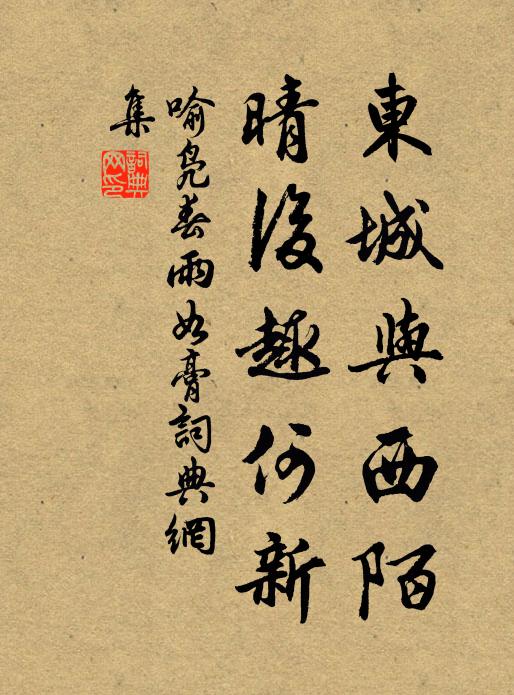 東城與西陌
晴後趣何新
喻鳧春雨如膏詞典網
集
詞典
网印